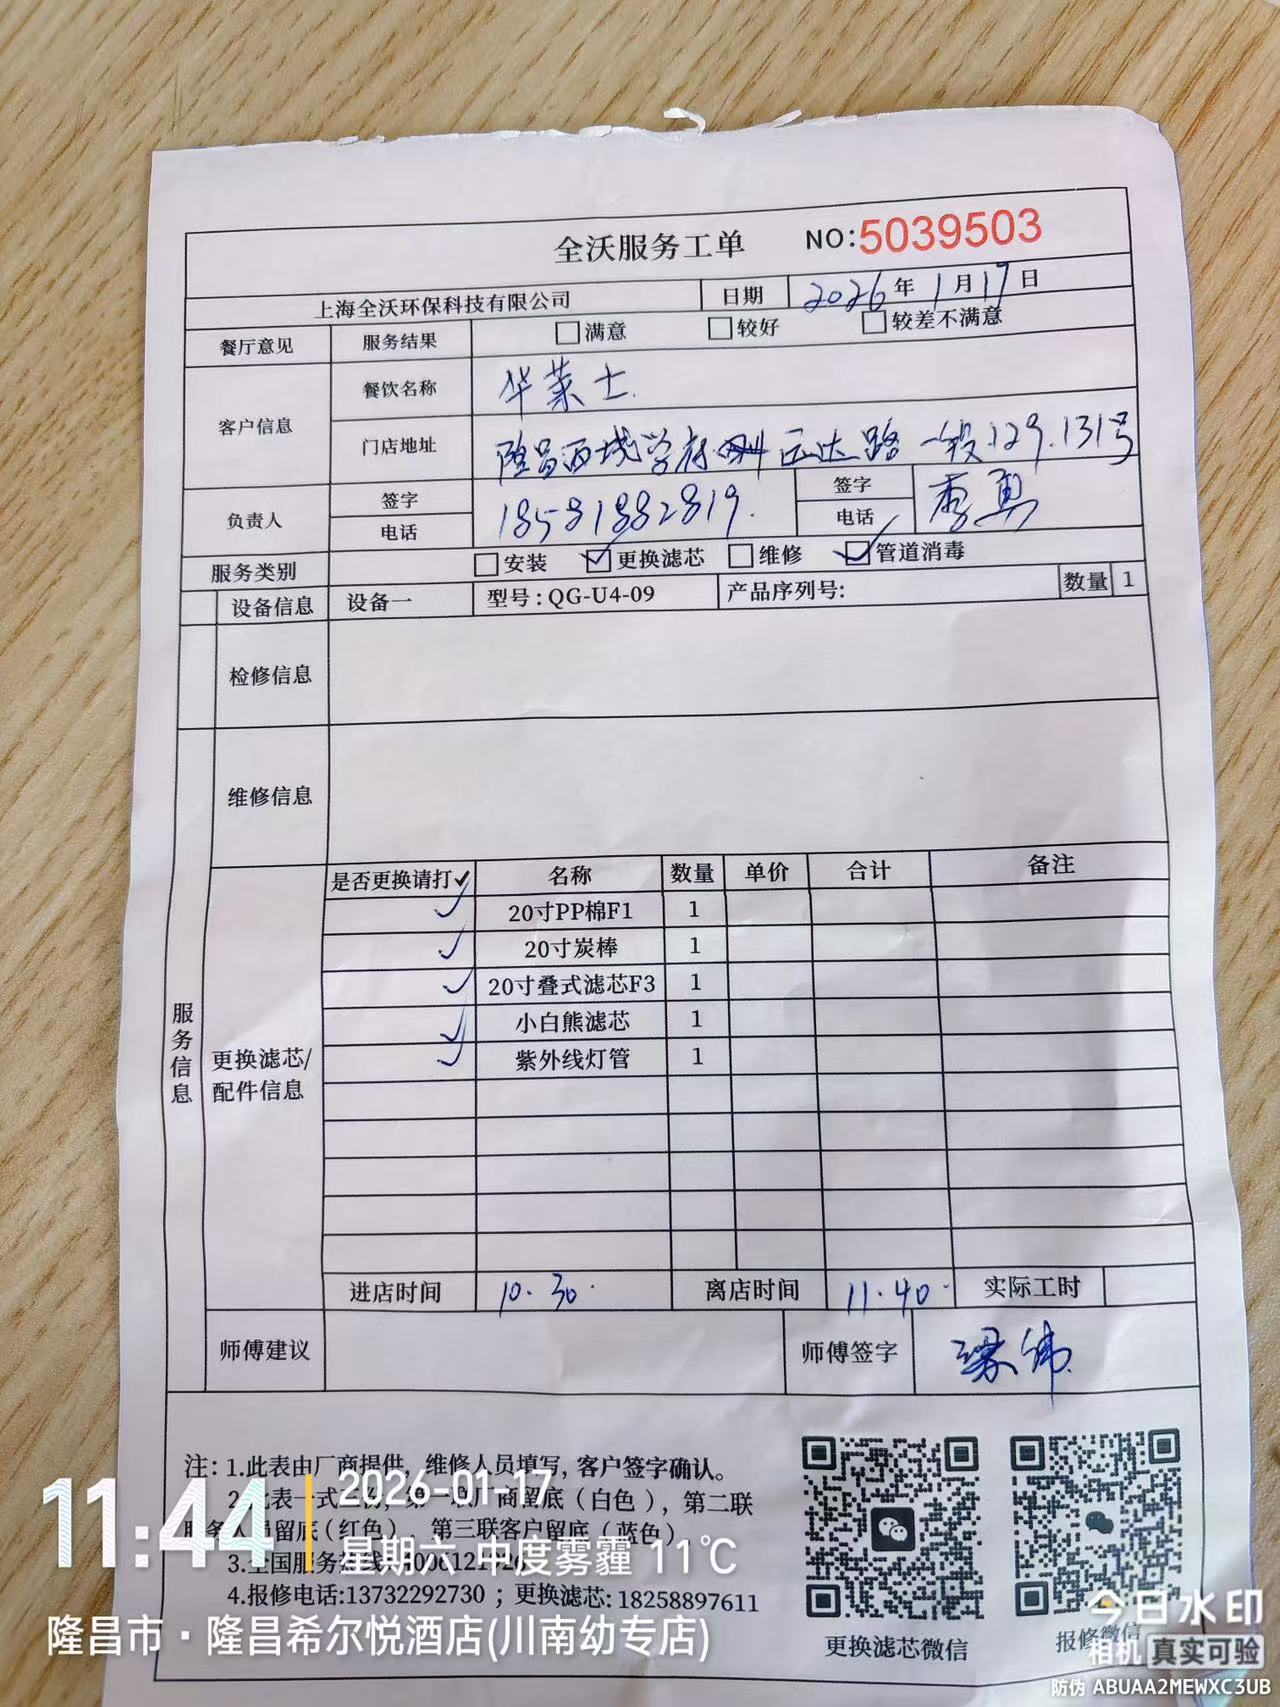 全沃服务工单 NO:5039503
上海全沃环保科技有限公司 日期 2026年1月17日
餐厅意见 服务结果 满意 较好 较差不满意
客户信息 餐饮名称 华莱士
门店地址 隆昌西城学府 运达路一段129.131号
负责人 签字 电话 18581882819. 签字 电话
服务类别 安装 ✓更换滤芯 维修 ✓管道消毒
设备信息 设备一 型号:QG-U4-09 产品序列号: 数量 1
检修信息
维修信息
服务信息
更换滤芯/配件信息
是否更换请打✓ 名称 数量 单价 合计 备注
✓ 20寸PP棉F1 1
✓ 20寸炭棒 1
✓ 20寸叠式滤芯F3 1
✓ 小白熊滤芯 1
✓ 紫外线灯管 1
进店时间 10.30. 离店时间 11.40. 实际工时
师傅建议 师傅签字 梁伟
注:1.此表由厂商提供,维修人员填写,客户签字确认。
2.此表一式三份,第一联厂商留底(白色),第二联
服务人员留底(红色),第三联客户留底(蓝色)
3.全国服务热线
4.报修电话:13732292730;更换滤芯:18258897611
更换滤芯微信
报修微信
11:44
2026-01-17
星期六 中度雾霾 11℃
隆昌市·隆昌希尔悦酒店(川南幼专店)
今日水印
相机 真实可验
防伪 ABUAA2MEWXC3UB